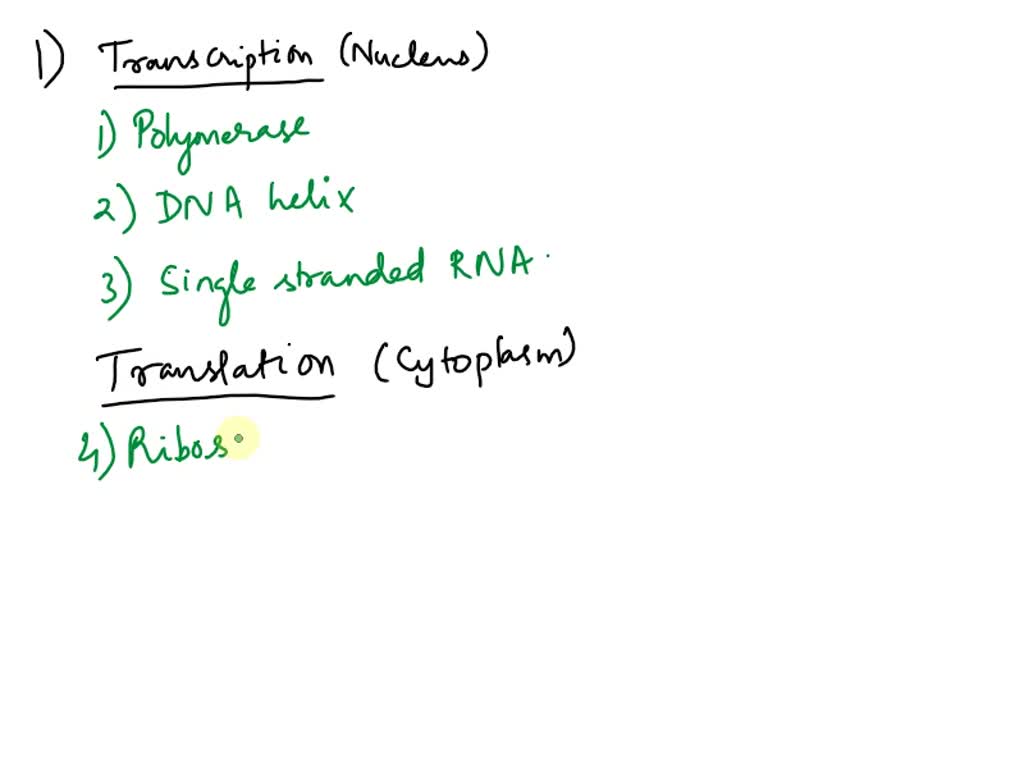 1) Transcription (Nucleus)
1) Polymerase
2) DNA helix
3) Single stranded RNA.
Translation (Cytoplasm)
4) Ribos